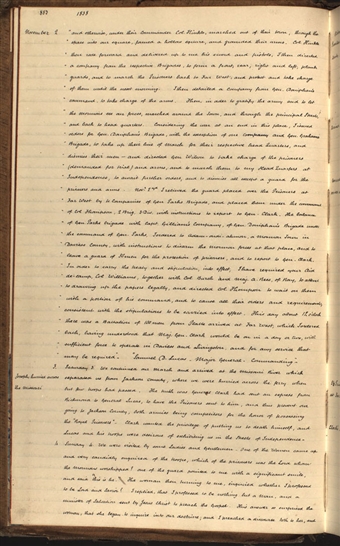 853 1838
November 2. and thence, under their Commander Col. Hinkle, marched out of their town, through the
there into our square, formed a hollow square, and grounded their arms. Col. Hinkle
then rode forward and delivered up to me his sword and pistols. I then directed
a company from the respective Brigades, to form a front, rear, right and left, flank
guards, and to march the Prisoners back to Far West, and protect and take charge
of them until the next morning. I then detailed a company from Gen. Doniphan's
command, to take charge of the arms. Then, in order to gratify the army and to let
the Mormons see our forces, marched around the town, and through the principal streets,
and back to head quarters. Considering the war at an end in this place, I issued
orders for Gen. Doniphan's Brigade, with the exception of one Company and Gen. Graham's
Brigade, to take up their line of march for their respective head quarters, and
dismiss their men — and directed Gen. Wilson to take charge of the prisoners
(demanded for trial) and arms, and to march them to my Head Quarters at
Independence, to await further orders, and to dismiss all except a guard for the
prisoners and arms. Nov. 3rd I relieved the guard placed over the Prisoners at
Far West by 4 Companies of Gen. Parks' Brigade, and placed them under the command
of Col. Thompson, 2 Brig. 3 Div. with instructions to report to Gen. Clark. The balance
of Gen. Parks' Brigade with Capt. Gillium's Company, of Gen. Doniphan's Brigade under
the command of Gen. Parks, I ordered to Adam-ondi-Ahman, a Mormon town in
Daviess County, with instructions to disarm the Mormon forces at that place, and to
leave a guard of 50 men for the protection of prisoners, and to report to Gen. Clark.
In order to carry the treaty and stipulations into effect, I have required your Aid
de-camp, Col. Williams, together with Col. Burch and Maj. A. Rees, of Ray, to attend
to drawing up the papers legally, and directed Col. Thompson to wait on them
with a portion of his command, and to cause all their orders and requirements,
consistent with the stipulations, to be carried into effect. This day about 12 o'clock
there was a Battalion of 100 men from Platte arrived at Far West, which I ordered
back, having understood that Maj. Gen. Clark would be on in a day or two, with
sufficient force to operate in Daviess and Livingston, and for any service that
may be required. "Samuel D. Lucas, Major General — Commanding"
3. Saturday 3. We continued our march and arrived at the Missouri River which
Joseph hurried across the Missouri. separated us from Jackson County, where we were hurried across the ferry when
but few troops had passed. The truth was General Clark had sent an express from
Richmond to General Lucas, to have the Prisoners sent to him, and thus prevent our
going to Jackson County, both armies being competitors for the honor of possessing
the "Royal Prisoners". Clark wanted the privilege of putting us to death himself, and
Lucas and his troops were desirous of exhibiting us in the Streets of Independence.
4. Sunday 4. We were visited by some Ladies and Gentlemen. One of the Women came up
and very candidly inquired of the troops, which of the prisoners was the Lord whom
the Mormons worshipped? One of the guard pointed to me with a significant smile,
and said "This is he." The woman then turning to me, inquired whether I professed
to be Lord and Savior? I replied, that I professed to be nothing but a man, and a
minister of Salvation sent by Jesus Christ to preach the Gospel. This answer so surprised the
woman, that she began to inquire into our doctrine; and I preached a discourse both to her, and